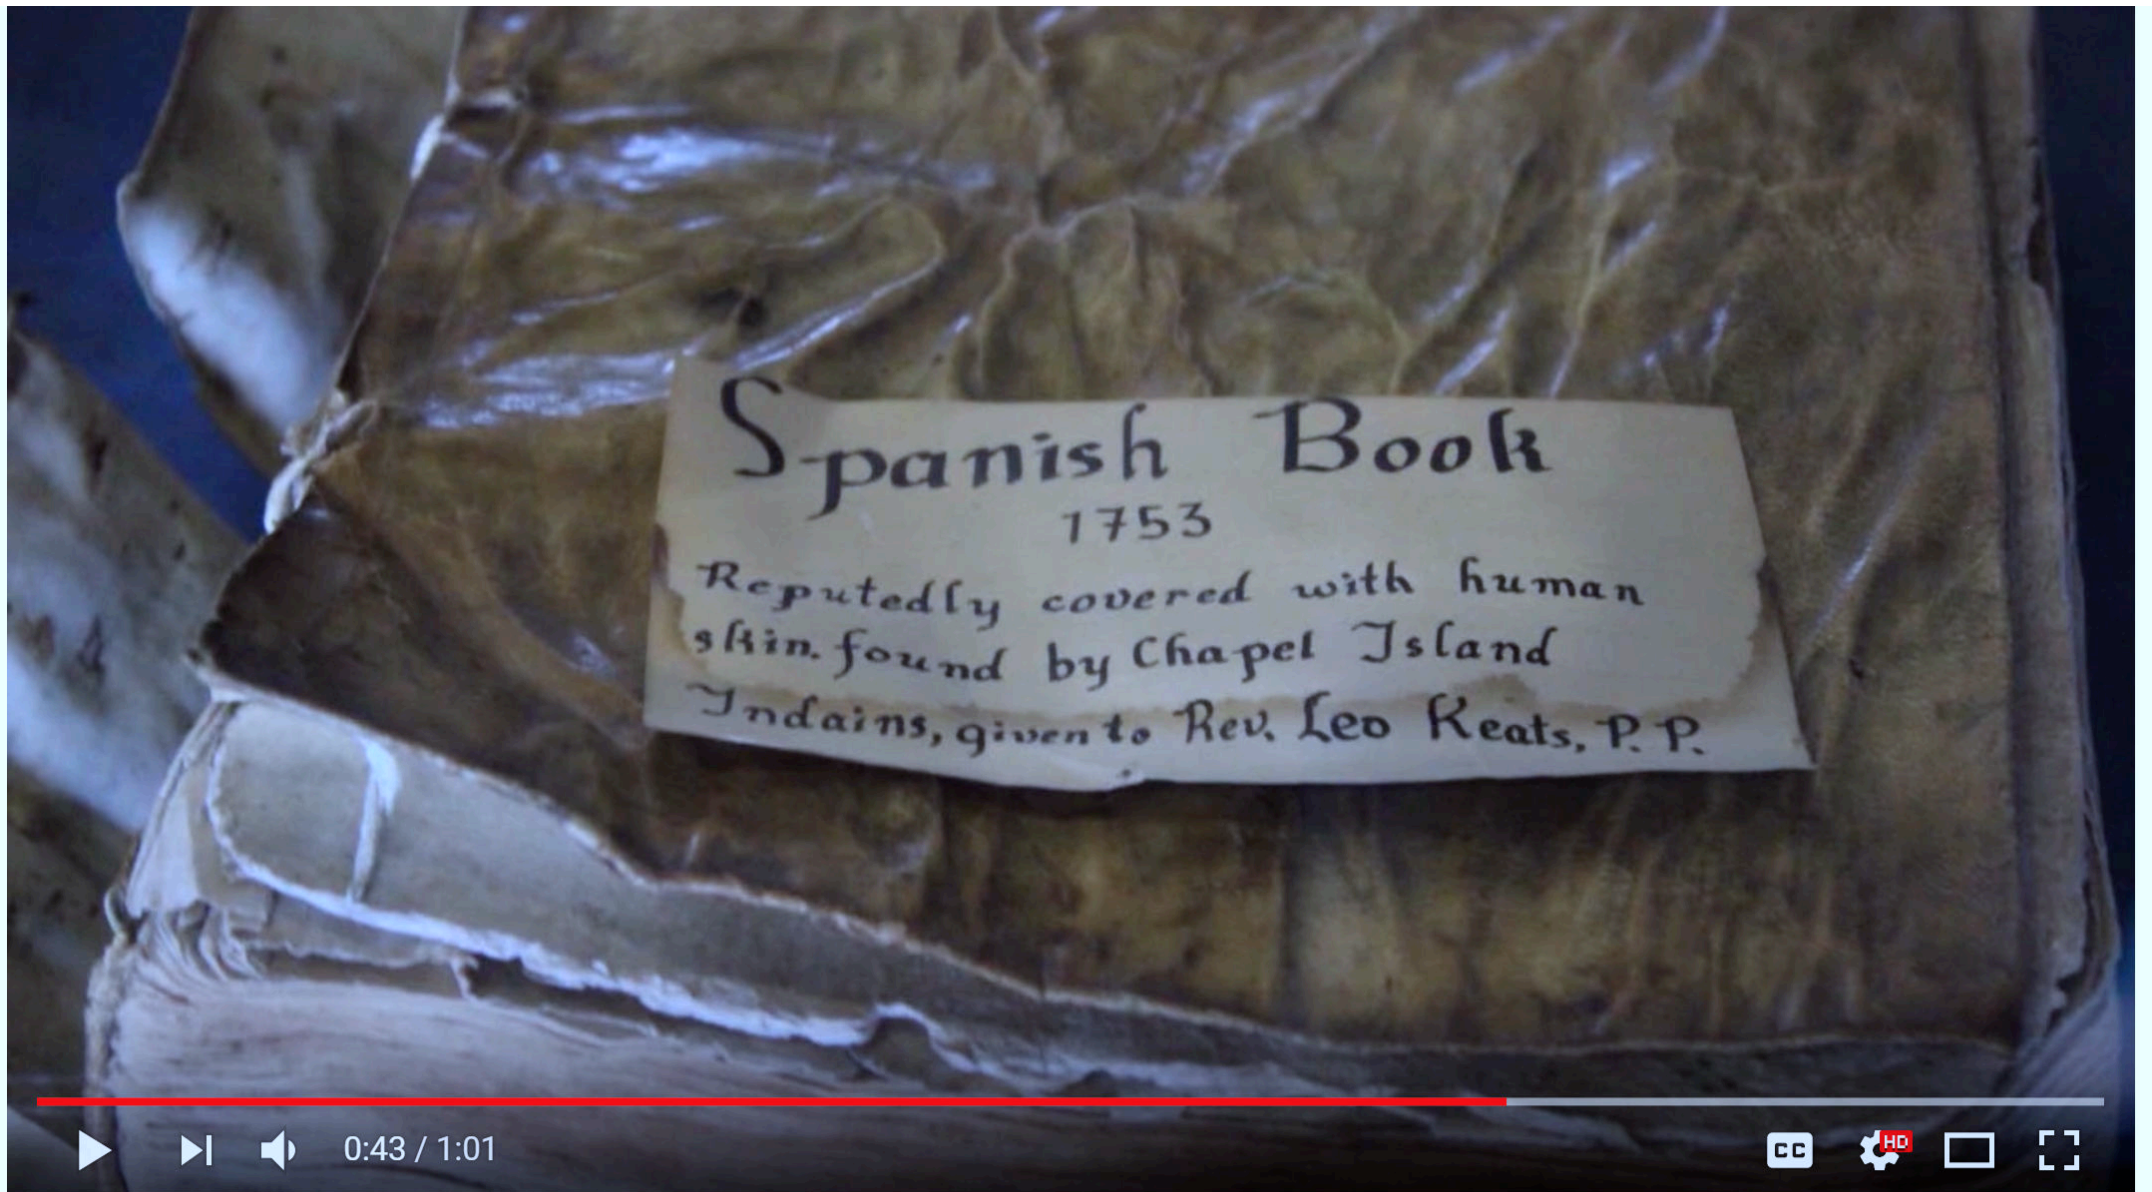 Spanish Book
1753
Reputedly covered with human
skin. found by Chapel Island
Indains, given to Rev. Leo Keats, P. P.
0:43 / 1:01
CC
HD